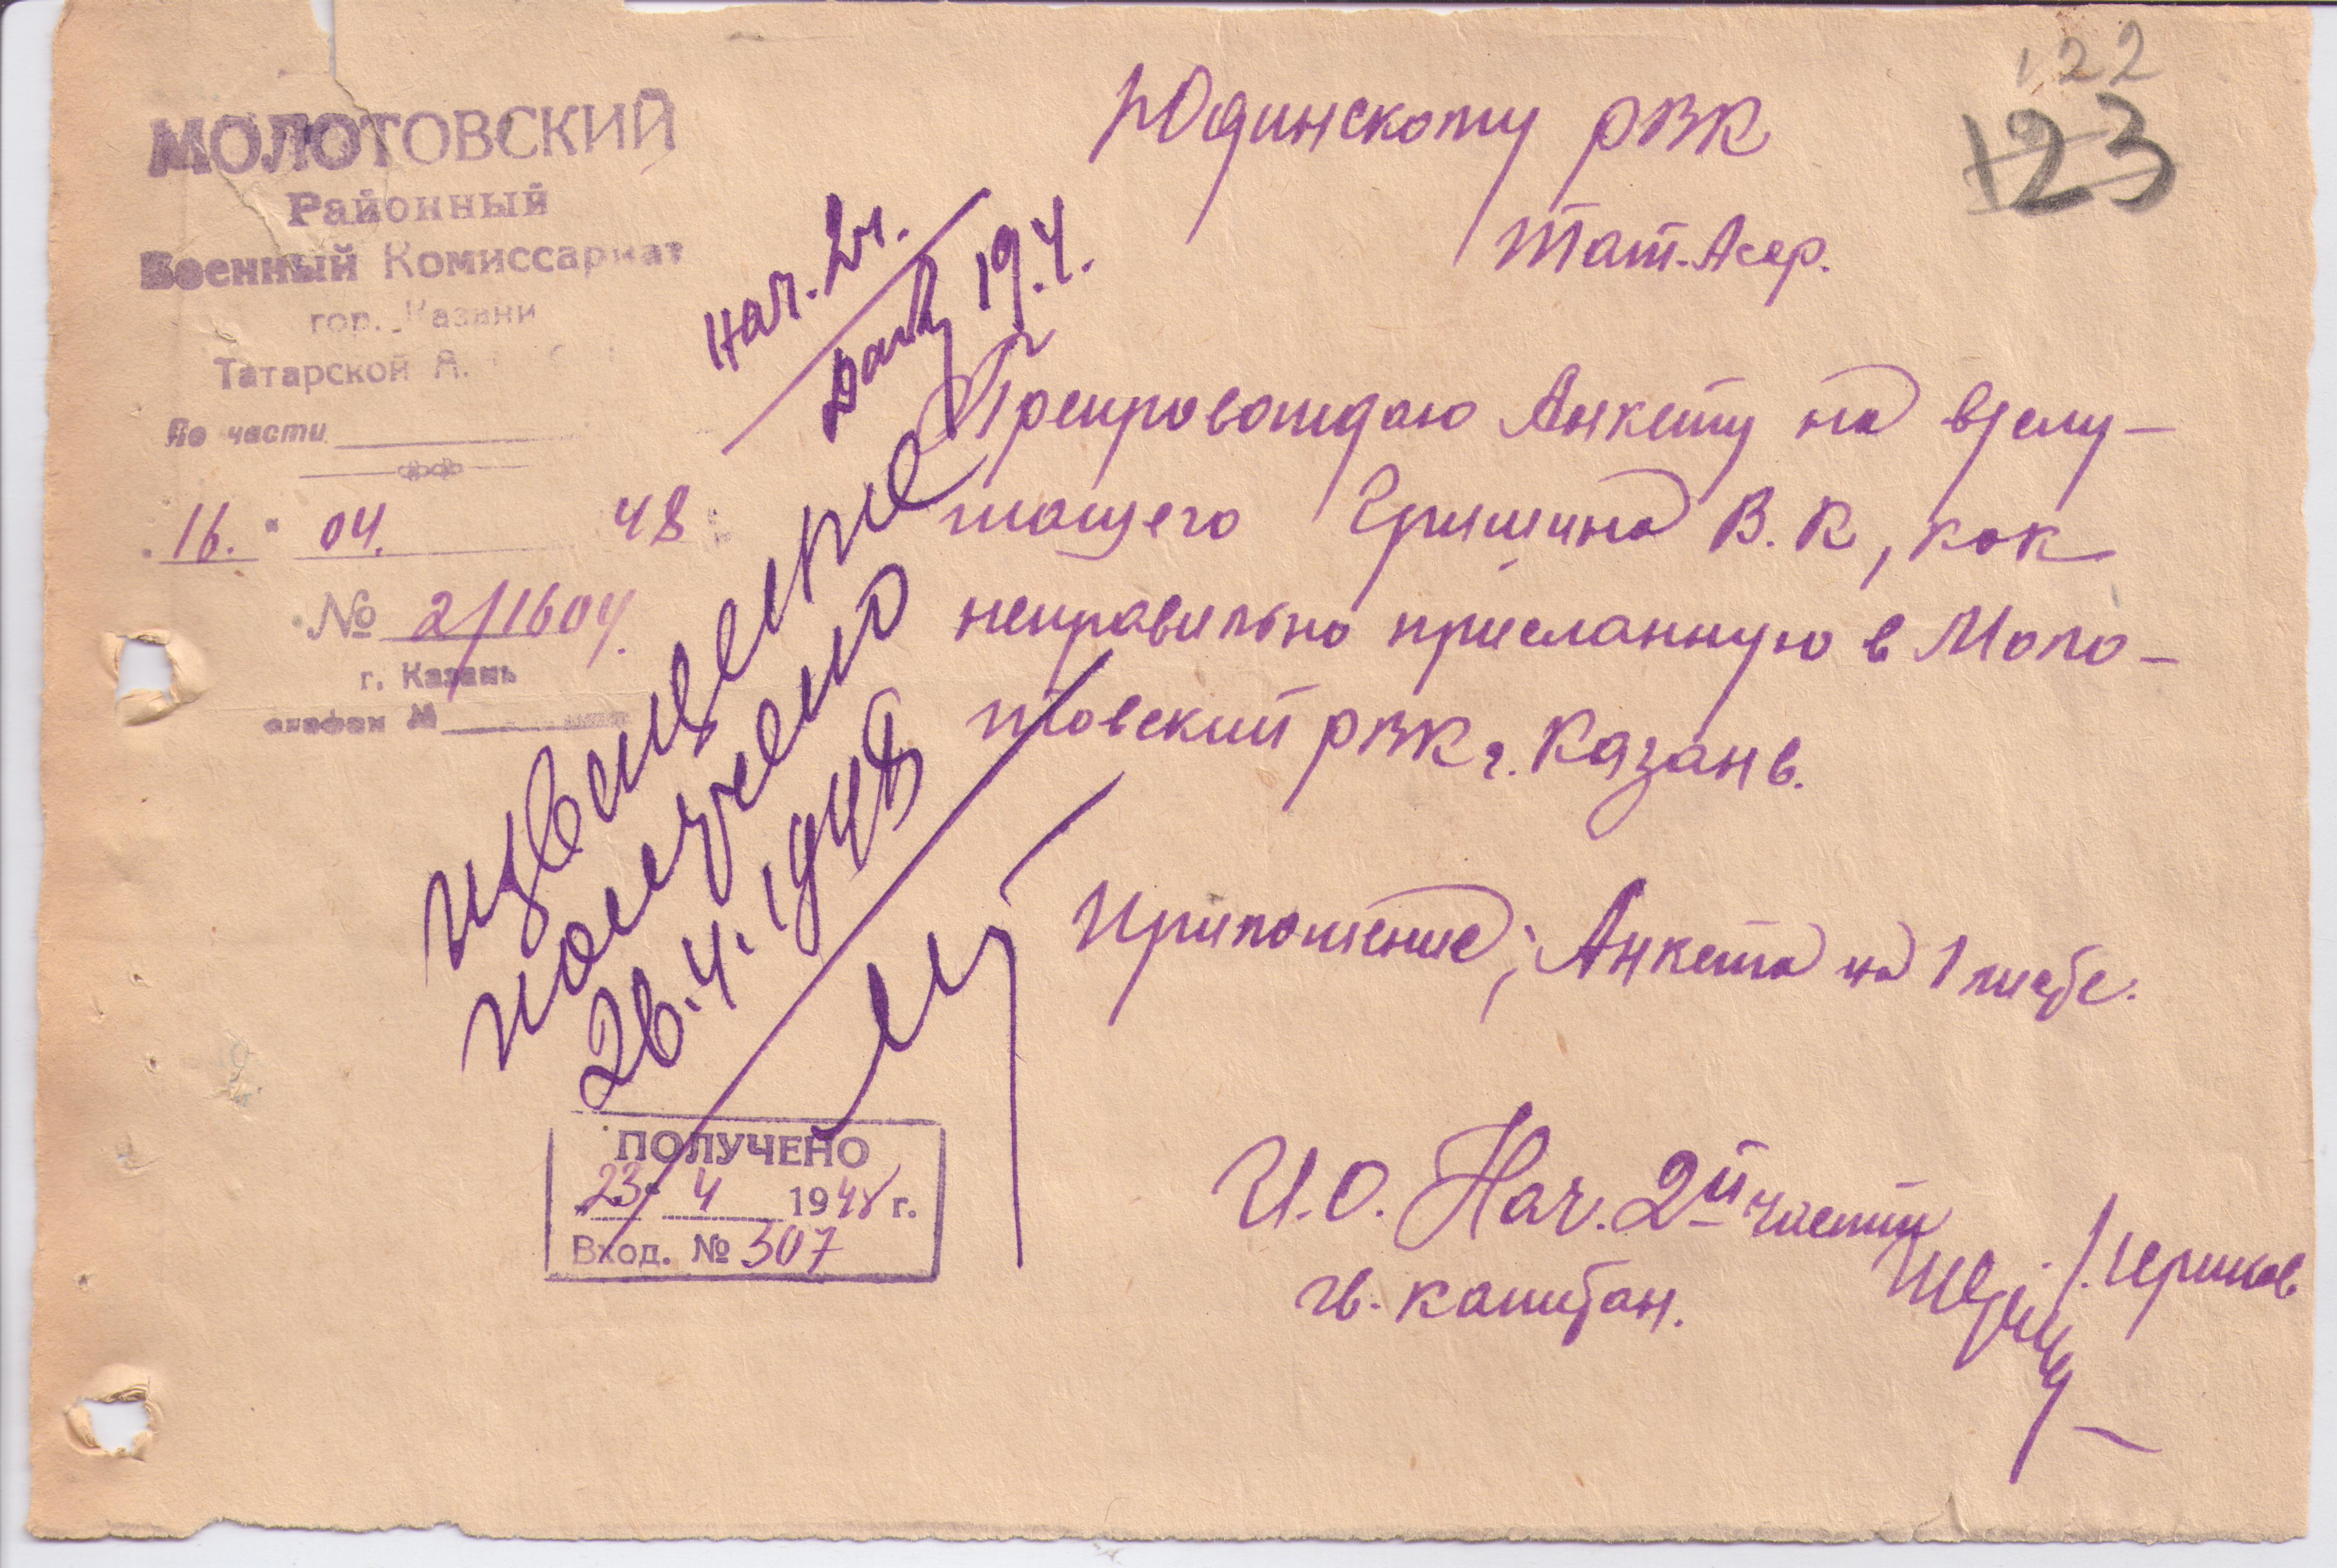 122
123
МОЛОТОВСКИЙ
Районный
Военный Комиссариат
гор. Казани
Татарской А.
По части
16. " 04. 48
№ 2/1604.
г. Казань
елефон №
Юдинскому РВК
Тат. Асср.
Нач. 2ч.
19.4.
Препровождаю Анкету на вслу-
жащего Гришина В.К, как
неправильно присланную в Моло-
товский РВК г. Казань.
Приложение; Анкета на 1 листе.
извещение
получено
26.4.1948
ПОЛУЧЕНО
"23" 4 1948 г.
Вход. № 307
И.О. Нач. 2й части
гв. капитан.